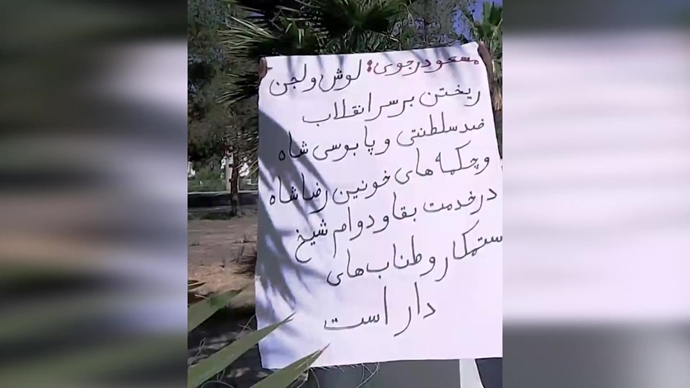 مسعود رجوی: لوش و لجن
ریختن بر سر انقلاب
ضد سلطنتی و پابوسی شاه
و چکمه های خونین رضا شاه
در خدمت بقا و دوام شیخ
ستمکار و طناب های
دار است